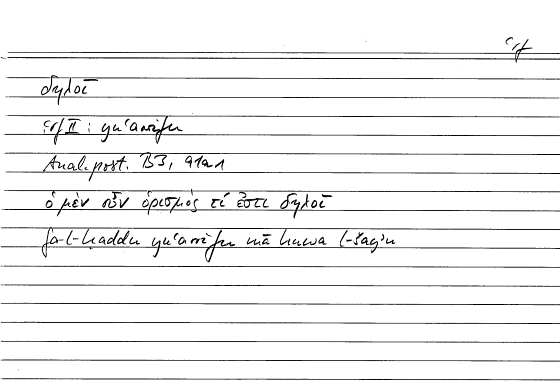 ʿrf
δηλοῖ
ʿrf II : yuʿarrifu
Anal. post. B3, 91a1
ὁ μὲν οὖν ὁρισμὸς τί ἐστι δηλοῖ
fa-l-ḥaddu yuʿarrifu mā huwa l-šayʾu